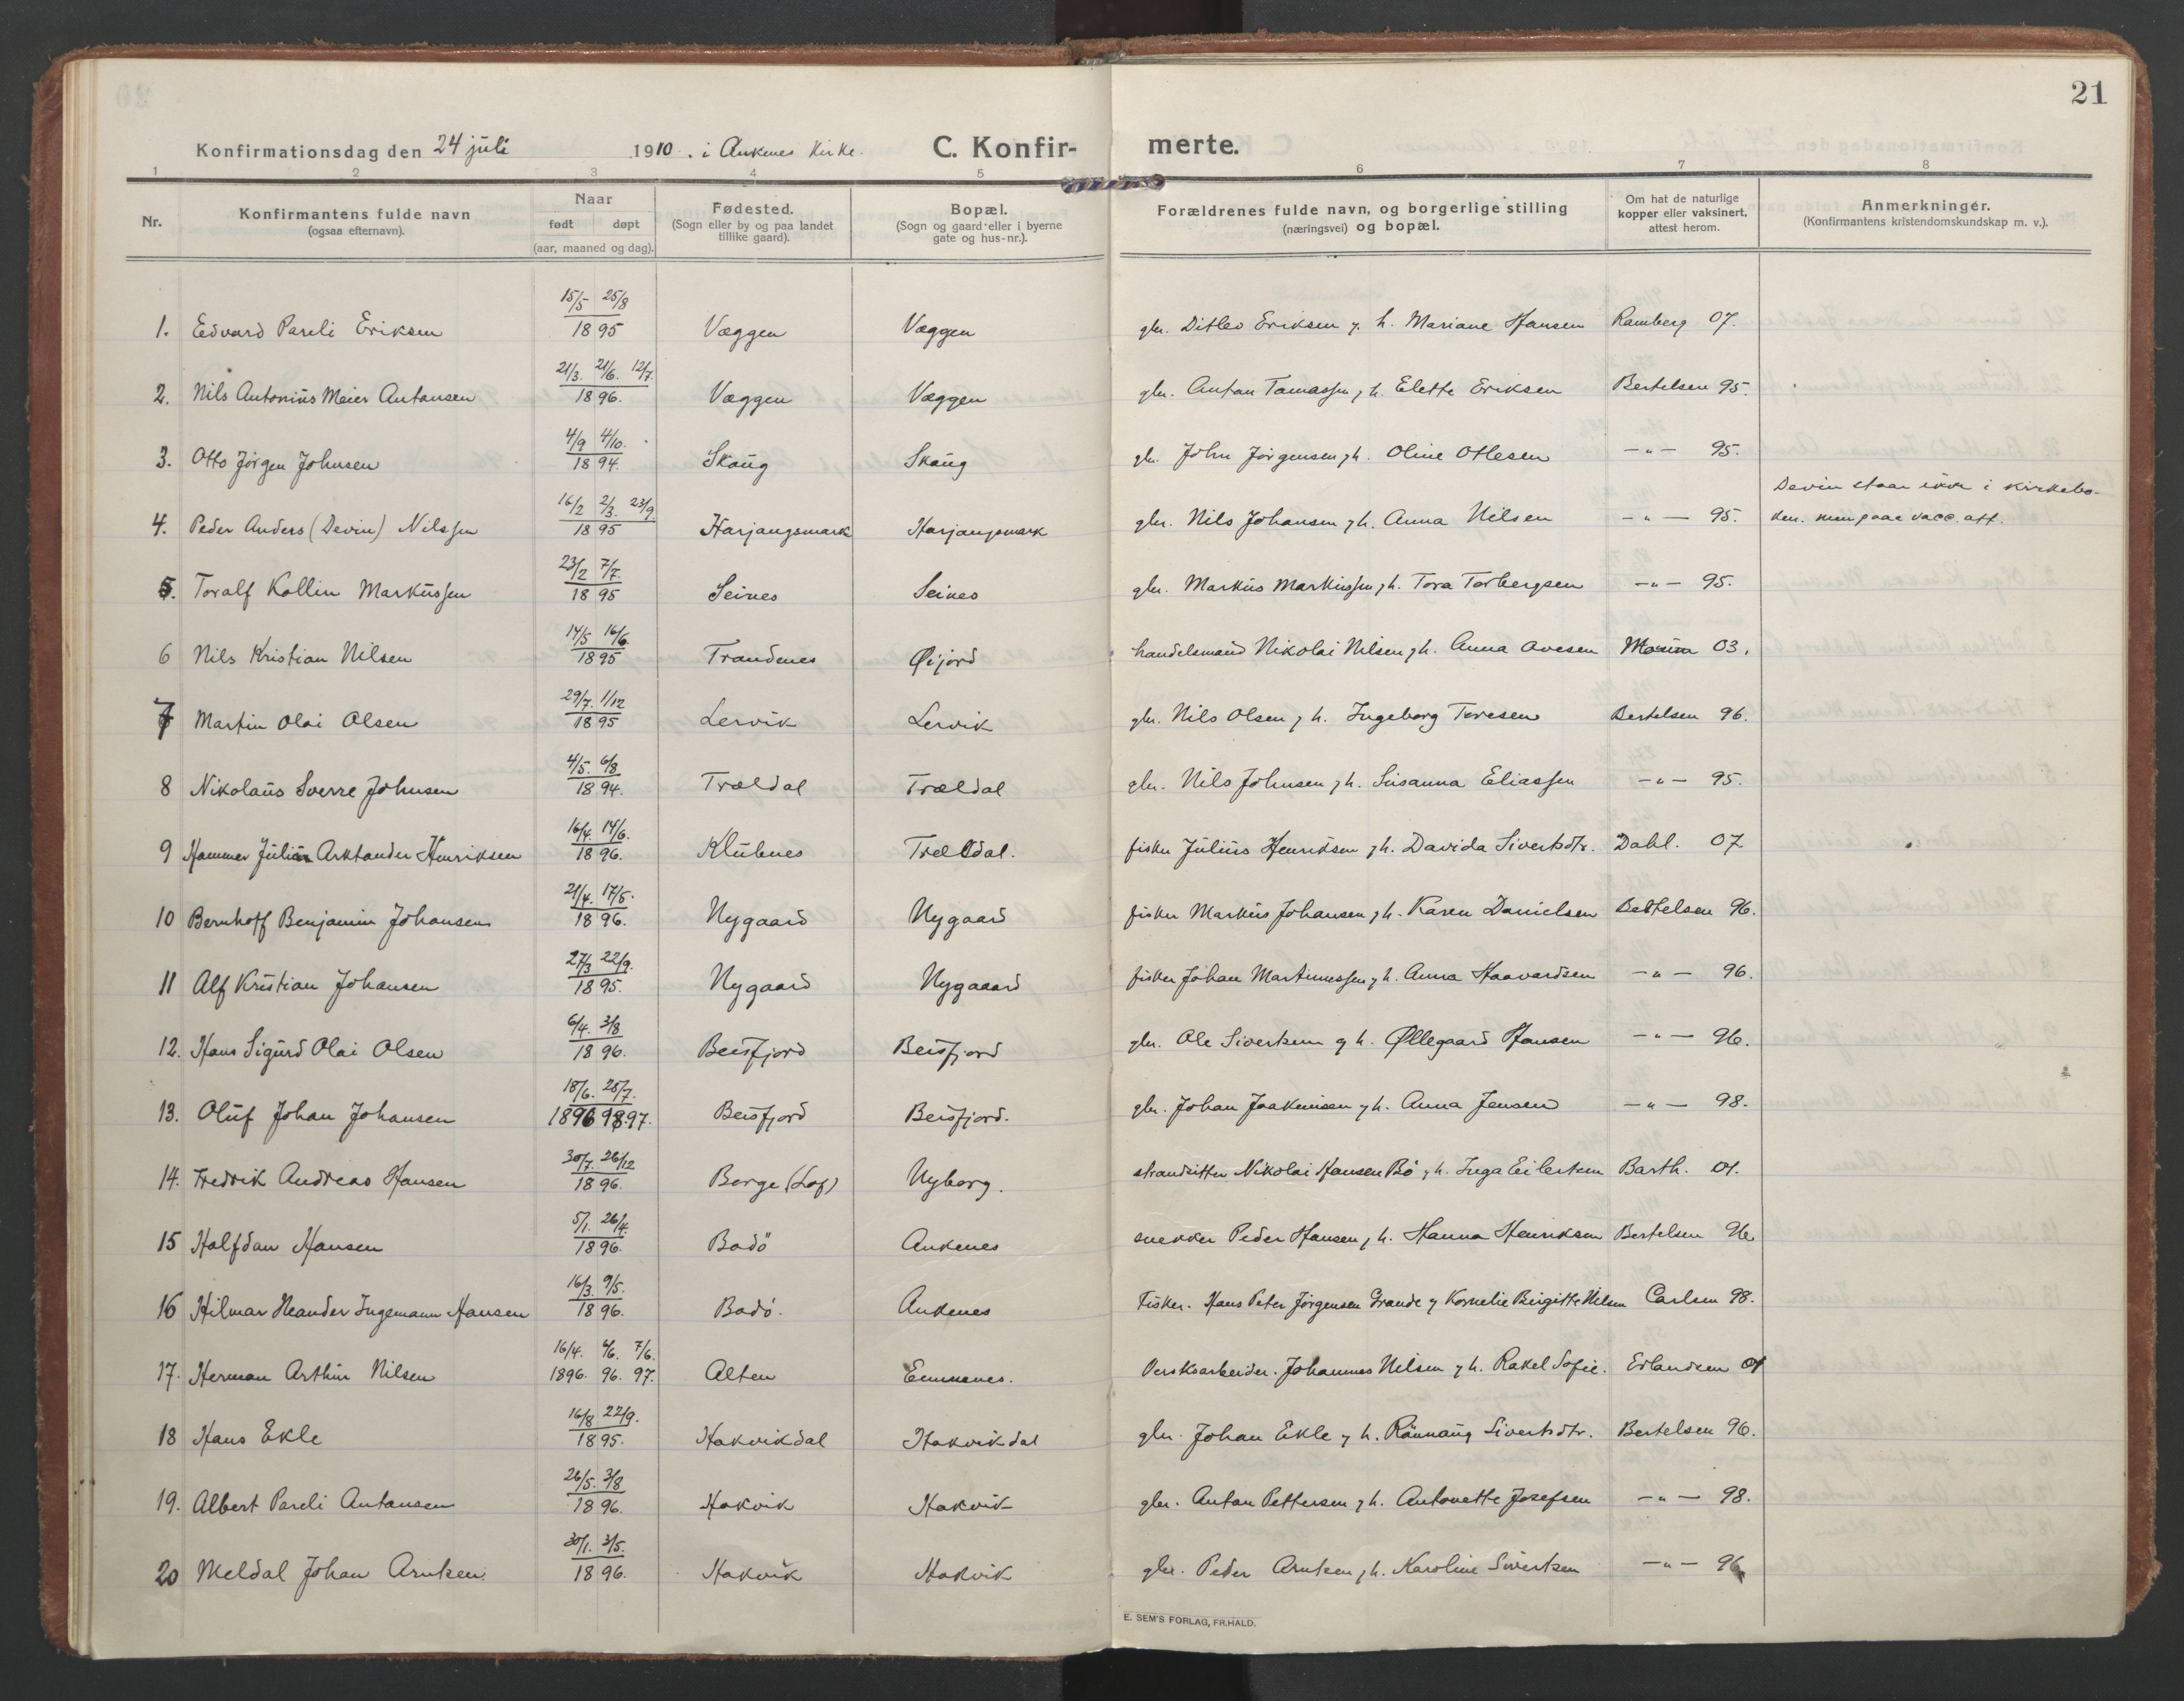 21
Konfirmationsdag den 24 juli 1910. i Ankenes Kirke. C. Konfir- merte.
1 2 3 4 5 6 7 8
Nr. Konfirmantens fulde navn (ogsaa efternavn). Naar født døpt (aar, maaned og dag). Fødested. (Sogn eller by og paa landet tillike gaard). Bopæl. (Sogn og gaard eller i byerne gate og hus-nr.). Forældrenes fulde navn, og borgerlige stilling (næringsvei) og bopæl. Om hat de naturlige kopper eller vaksinert, attest herom. Anmerkninger. (Konfirmantens kristendomskundskap m. v.).
15/5 25/8
1. Edvard Pareli Eriksen 1895 Væggen Væggen gbr. Ditlev Eriksen g. h. Mariane Hansen Ramberg 07.
21/3. 21/6. 12/7.
2. Nils Antonius Meier Antonsen 1896. Væggen Væggen gbr. Anton Tomassen g h. Elette Eriksen Bertelsen 95.
4/9 4/10.
3. Otto Jörgen Johnsen 1894. Skaug Skaug gbr. John Jörgensen g h. Oline Ottesen -"- 95.
Devin staar ikke i kirkebo-
16/2 2/3. 23/9.
4. Peder Anders (Devin) Nilssen 1895 Harjangsmark Harjangsmark gbr. Nils Johansen g h. Anna Nilsen -"- 95. ken. men paa vacc. att.
23/2 7/7.
5. Toralf Kollin Markussen 1895 Seines Seines gbr. Markus Markussen g h. Tora Torbergsen -"- 95.
14/5 16/6.
6 Nils Kristian Nilsen 1895 Trandenes Øijord handelsmand Nikolai Nilsen g h. Anna Ovesen 03.
29/7. 1/12
7 Martin Olai Olsen 1895 Lervik Lervik gbr. Nils Olsen g h. Ingeborg Toresen Bertelsen 96.
4/5. 6/8
8 Nikolaus Sverre Johnsen 1894. Trældal Trældal gbr. Nils Johnsen g h. Susanna Eliassen -"- 95.
16/4. 14/6.
9 Hammer Julius Arktander Henriksen 1896. Klubnes Trældal. fisker Julius Henriksen g h. Davida Sivertsdtr. Dahl. 07
21/4. 17/5.
10 Bernhoff Benjamin Johansen 1896. Nygaard Nygaard fisker Markus Johansen g h. Karen Danielsen Bertelsen 96.
27/3 22/9.
11 Alf Kristian Johansen 1895. Nygaard Nygaaard fisker Johan Martinussen g h. Anna Haavardsen -"- 96.
6/4. 3/8
12. Hans Sigurd Olai Olsen 1896. Beisfjord Beisfjord gbr. Ole Sivertsen g h. Øllegaard Hansen -"- 96.
18/6. 25/7.
13. Oluf Johan Johansen 1896 98.97. Beisfjord Beisfjord. gbr. Johan Joakimsen g h. Anna Jensen -"- 98.
30/7. 26/12
14. Fredrik Andreas Hansen 1896. Borge (Lof) Nyborg. strandsitter Nikolai Hansen Bö g h. Inga Eilertsen Barth. 01.
5/1. 26/4.
15 Halfdan Hansen 1896. Bodö Ankenes snekker Peder Hansen g h. Hanna Henriksen Bertelsen 96
16/3. 9/5.
16 Hilmar Neander Ingemann Hansen 1896. Bodö. Ankenes Fisker. Hans Peter Jörgensen Grande g Kornelie Birgitte Nilsen Carlsen 98.
16/4. 4/6. 7/6.
17. Herman Arthur Nilsen 1896. 96. 97. Alten Emmenes. Verksarbeider. Johannes Nilsen g h. Rakel Sofie. Erlandsen 01
16/8 22/9.
18 Hans Ekle 1895. Hakvikdal Hakvikdal gbr. Johan Ekle g h. Rönnaug Sivertsdtr. Bertelsen 96.
26/5. 3/8
19. Albert Pareli Antonsen 1896. Hakvik Hakvik gbr. Anton Pettersen g h. Antonette Josefsen -"- 98.
30/1. 3/5.
20 Meldal Johan Arntsen 1896. Hakvik Hakvik gbr. Peder Arntsen g h. Karoline Sivertsen -"- 96
E. SEM'S FORLAG, FR.HALD.